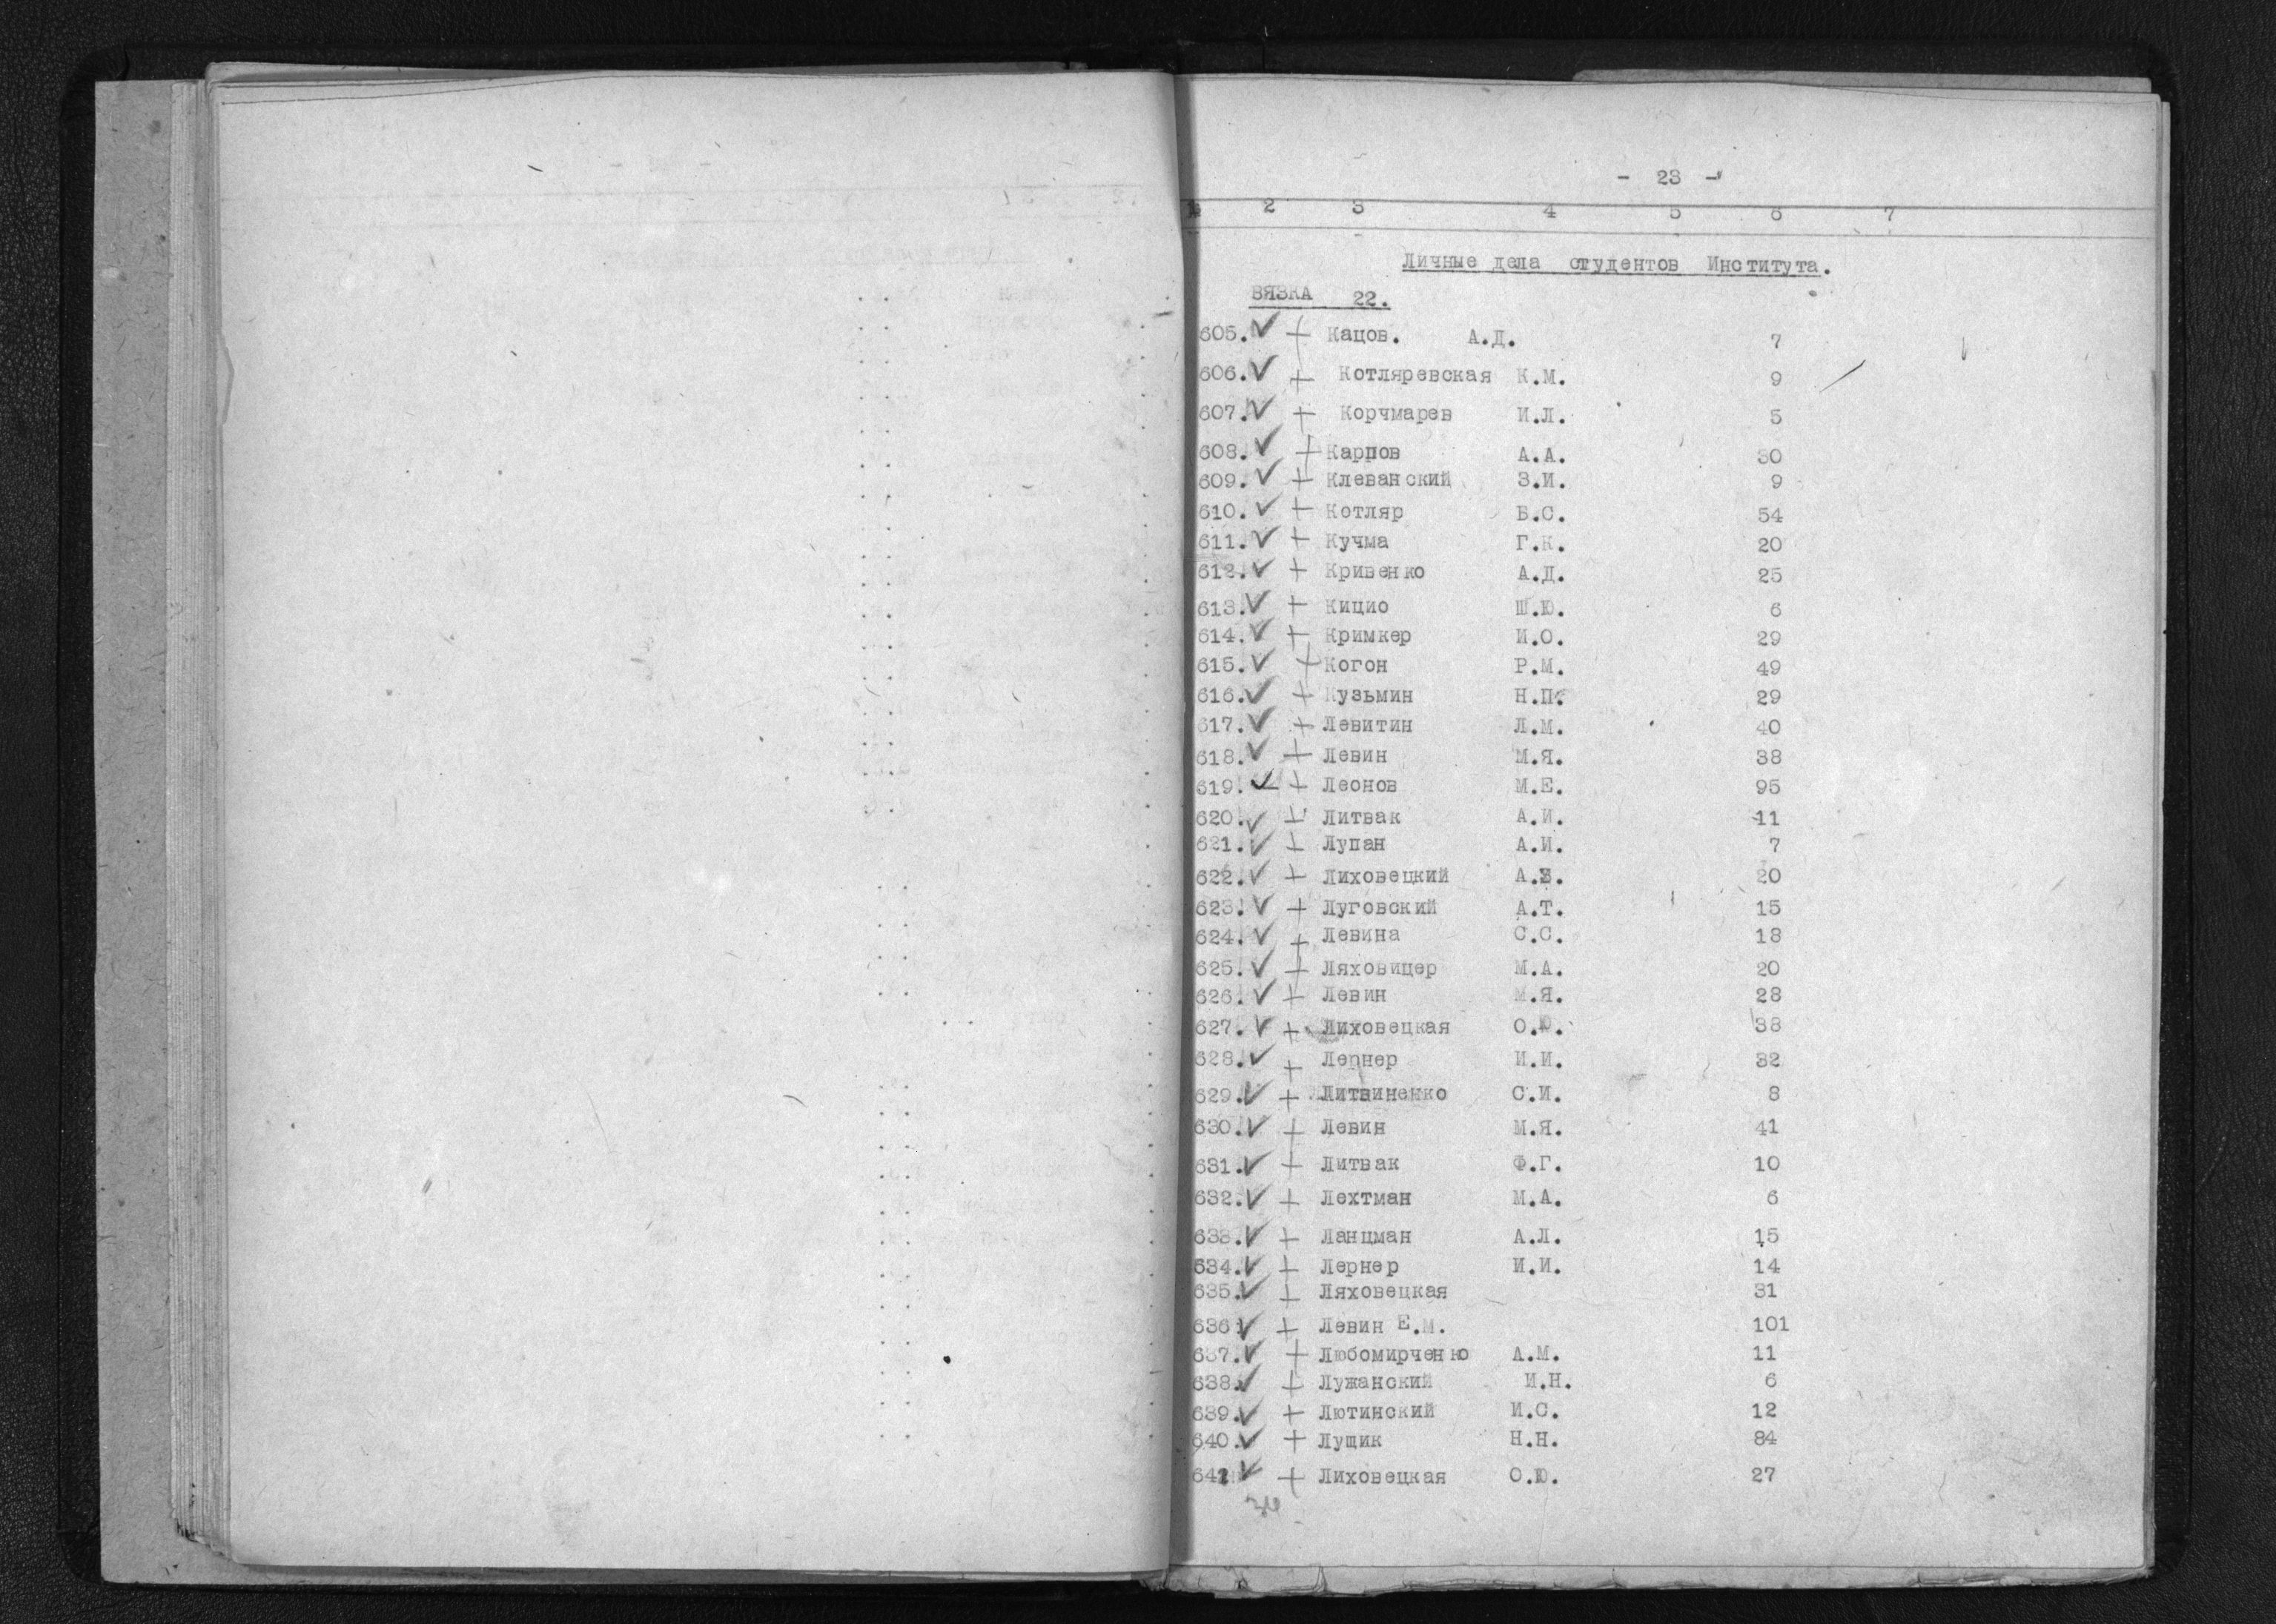 - 23 -
1 2 3 4 5 6 7
Личные дела студентов Института.
ВЯЗКА 22.
605. ✓ + Кацов. А.Д. 7
606. ✓ + Котляревская К.М. 9
607. ✓ + Корчмарев И.Л. 5
608. ✓ + Карпов А.А. 30
609. ✓ + Клеванский З.И. 9
610. ✓ + Котляр Б.С. 54
611. ✓ + Кучма Г.К. 20
612. ✓ + Кривенко А.Д. 25
613. ✓ + Кицио Ш.Ю. 6
614. ✓ + Кримкер И.О. 29
615. ✓ + Когон Р.М. 49
616. ✓ + Кузьмин Н.П. 29
617. ✓ + Левитин Л.М. 40
618. ✓ + Левин М.Я. 38
619. ✓ + Леонов М.Е. 95
620. ✓ + Литвак А.И. 11
621. ✓ + Лупан А.И. 7
622. ✓ + Лиховецкий А. 20
623. ✓ + Луговский А.Т. 15
624. ✓ + Левина С.С. 18
625. ✓ + Ляховицер М.А. 20
626. ✓ + Левин М.Я. 28
627. ✓ + Лиховецкая О.Ю. 38
628. ✓ + Лернер И.И. 32
629. ✓ + Литвиненко С.И. 8
630. ✓ + Левин М.Я. 41
631. ✓ + Литвак Ф.Г. 10
632. ✓ + Лехтман М.А. 6
633. ✓ + Ланцман А.Л. 15
634. ✓ + Лернер И.И. 14
635. ✓ + Ляховецкая 31
636 ✓ + Левин Е.М. 101
637. ✓ + Любомирченко А.М. 11
638. ✓ + Лужанский И.Н. 6
639. ✓ + Лютинский И.С. 12
640. ✓ + Лущик Н.Н. 84
641 ✓ + Лиховецкая О.Ю. 27